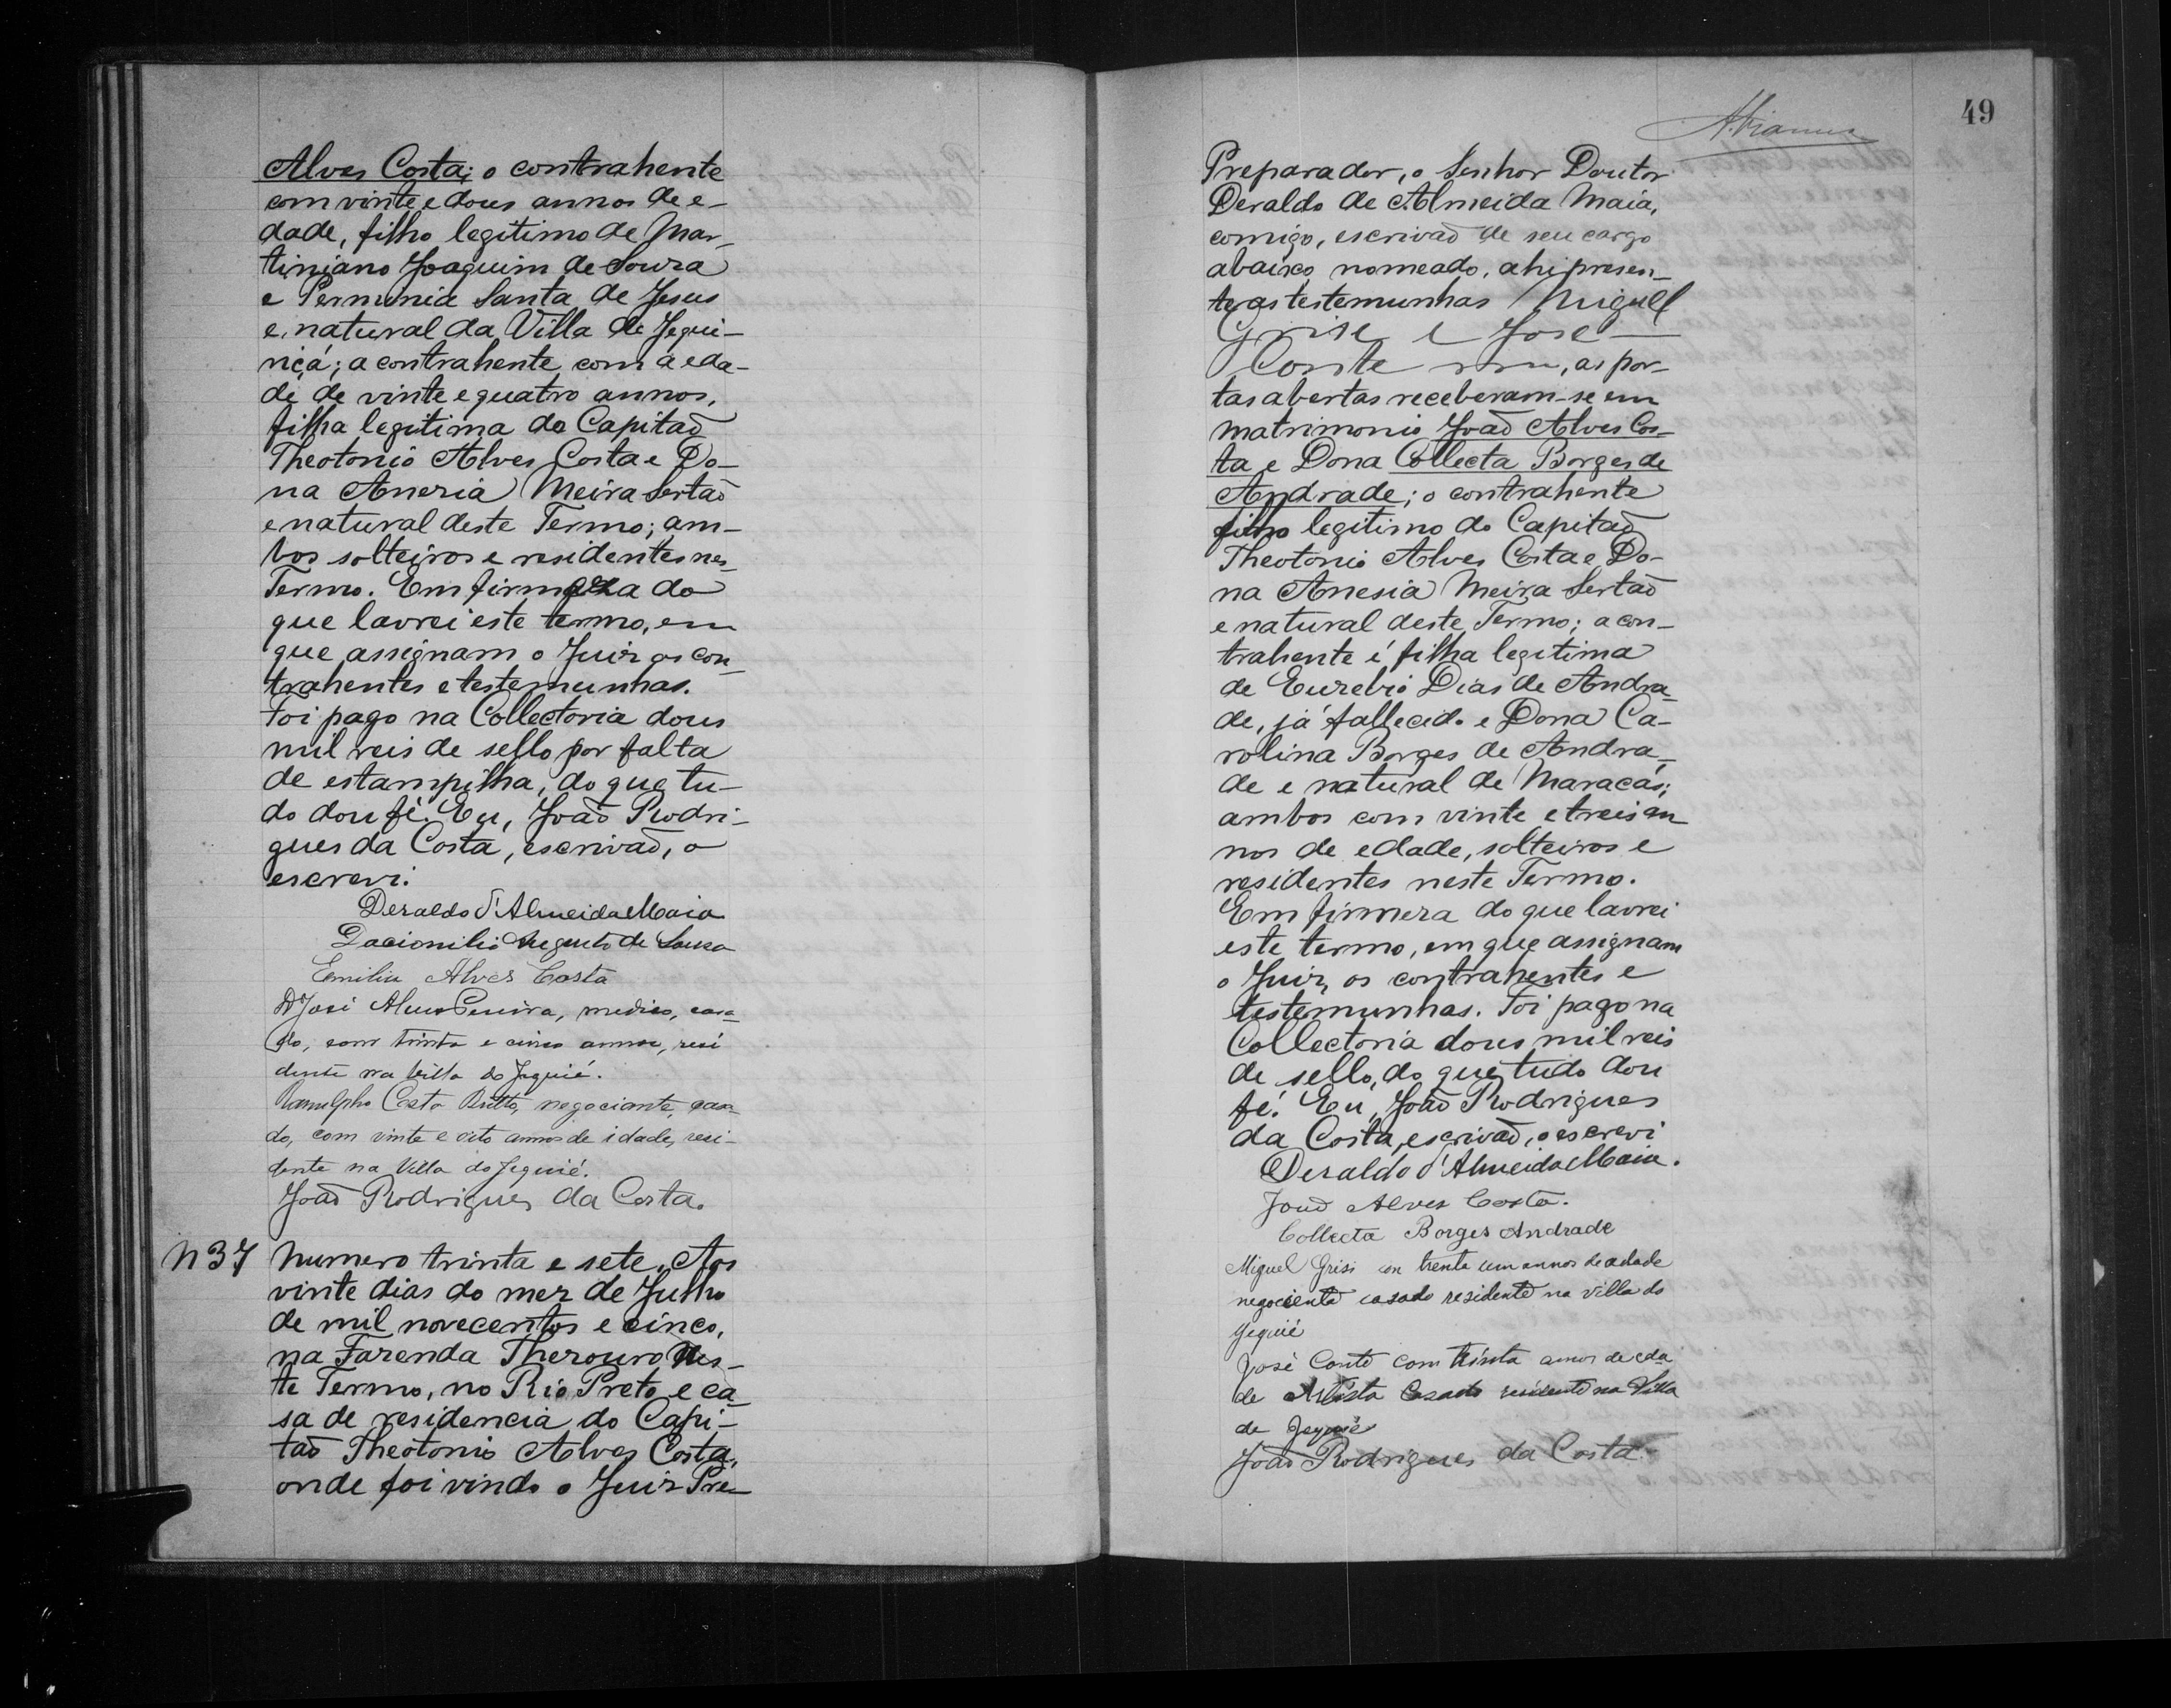 Alves Costa; o contrahente
com vinte e dous annos de e-
dade, filho legitimo de Mar-
tiniano Joaquim de Souza
e Perminia Santa de Jesus
e natural da Villa de Jequi-
riçá; a contrahente com a eda-
de de vinte e quatro annos,
filha legitima do Capitaõ
Theotonio Alves Costa e Do-
na Anezia Meira Sertaõ
e natural deste Termo; am-
bos solteiros e residentes nes-
Termo. Em firmeza do
que lavrei este termo, em
que assignam o Juiz os con-
trahentes e testemunhas.
Foi pago na Collectoria dous
mil reis de sello por falta
de estampilha, do que tu-
do dou fé. Eu, Joaõ Rodri-
gues da Costa, escrivaõ, o
escrevi.
Deraldo d'Almeida Maia
Dacionilio Augusto de Souza
Emilia Alves Costa
Dr José Alves Pereira, medico, casa-
do, com trinta e cinco annos, resi
dente na Villa do Jequié.
Ranulpho Costa Britto, negociante, casa-
do, com vinte e oito annos de idade, resi-
dente na Villa do Jequié.
Joaõ Rodrigues da Costa.
N 37 Numero trinta e sete. Aos
vinte dias do mez de Julho
de mil novecentos e cinco,
na Fazenda Thezouro nes-
te Termo, no Rio Preto e ca-
sa de residencia do Capi-
taõ Theotonio Alves Costa,
onde foi vindo o Juiz Pre-
49
Preparador, o Senhor Doutor
Deraldo de Almeida Maia,
comigo, escrivaõ de seu cargo
abaixo nomeado, ahi presen-
te as testemunhas Miguel
Grise e José
Conte, as por-
tas abertas receberam-se em
matrimonio Joaõ Alves Cos-
ta e Dona Collecta Borges de
Andrade; o contrahente
filho legitimo do Capitaõ
Theotonio Alves Costa e Do-
na Anesia Meira Sertaõ
e natural deste Termo; a con-
trahente é filha legitima
de Euzebio Dias de Andra-
de, já fallecido e Dona Ca-
rolina Borges de Andra-
de e natural de Maracás;
ambos com vinte e treis an
nos de edade, solteiros e
residentes neste Termo.
Em firmeza do que lavrei
este termo, em que assignam
o Juiz, os contrahentes e
testemunhas. Foi pago na
Collectoria dous mil reis
de sello, do que tudo dou
fé. Eu, Joaõ Rodrigues
da Costa, escrivaõ, o escrevi
Deraldo d'Almeida Maia.
Joaõ Alves Costa.
Collecta Borges Andrade
Miguel Grisi con trenta um annos de adade
negociente casado residente na villa do
Jequié
José Conte com trinta annos de eda
de Artista Casado residente na Villa
de Jequié
Joaõ Rodrigues da Costa.